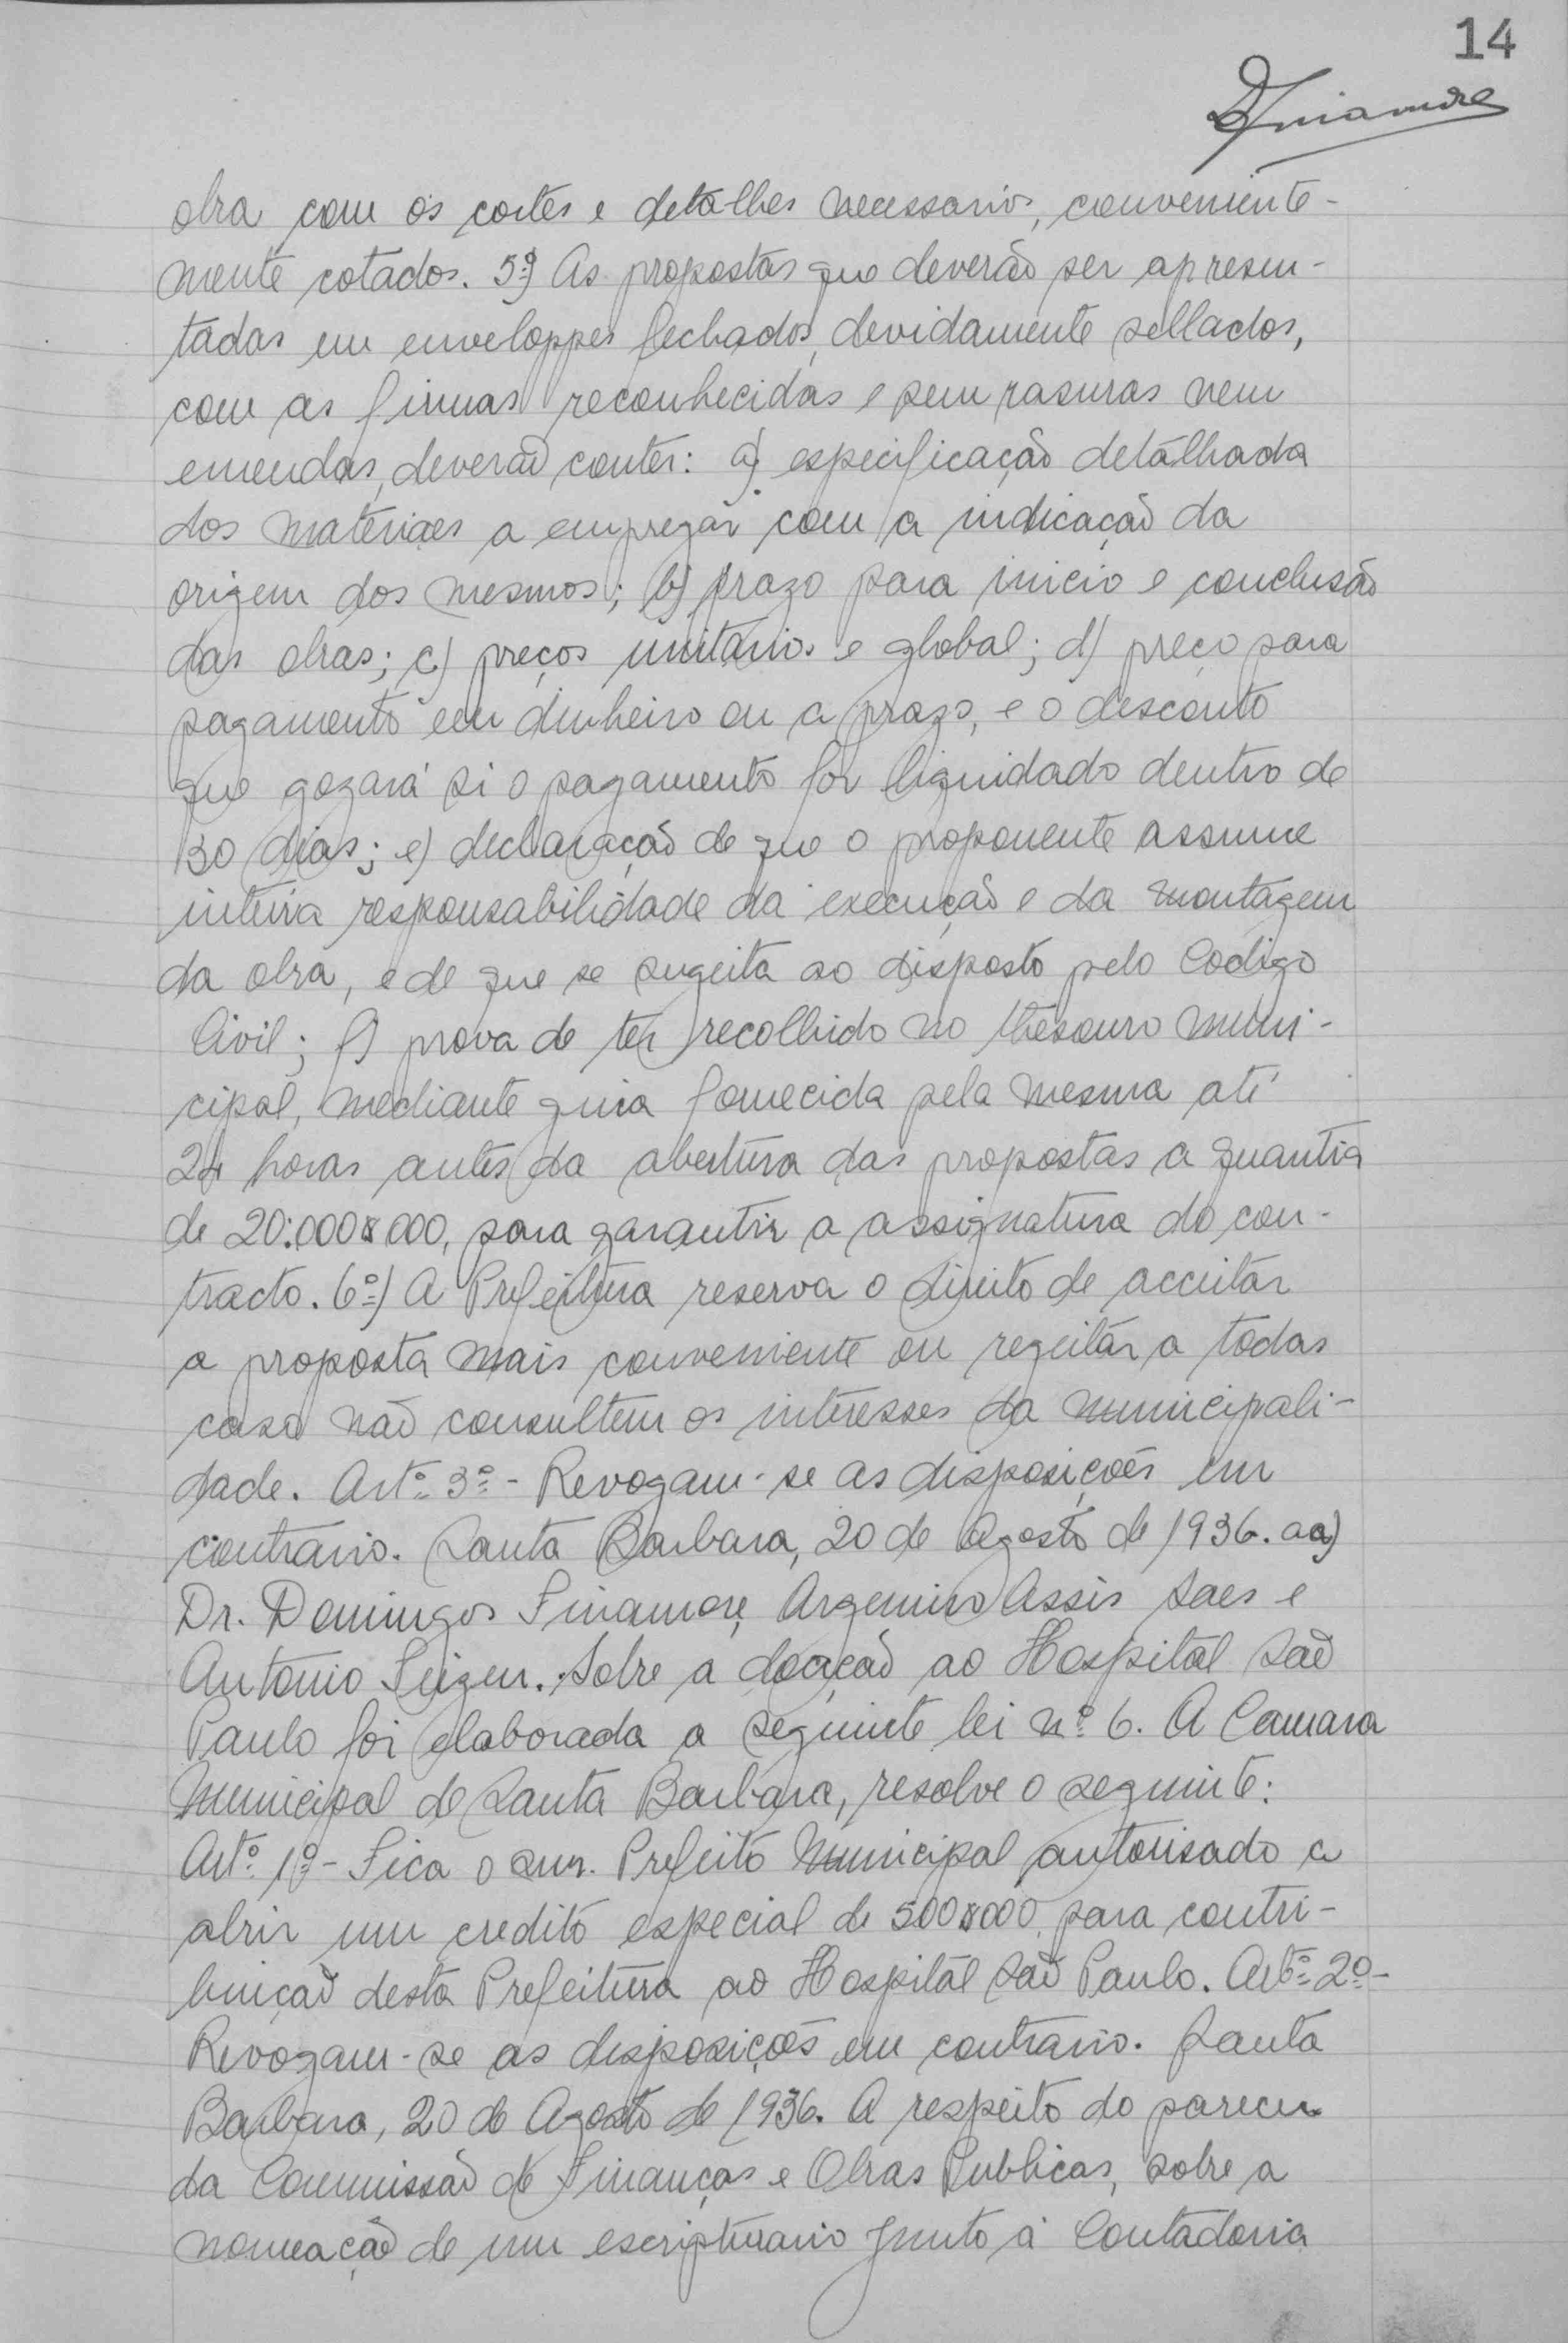 14
DFinamore
obra com os cortes e detalhes necessarios, conveniente-
mente cotados. 5º) As propostas que deverão ser apresen-
tadas em enveloppes fechados, devidamente sellados,
com as firmas reconhecidas e sem rasuras nem
emendas, deverão conter: a) especificação detalhada
dos materiaes a empregar com a indicação da
origem dos mesmos; b) prazo para inicio e conclusão
das obras; c) preços unitarios e global; d) preço para
pagamento em dinheiro ou a prazo, e o desconto
que gozará si o pagamento for liquidado dentro de
30 dias; e) declaração de que o proponente assume
inteira responsabilidade da execução e da montagem
da obra, e de que se sugeita ao disposto pelo Codigo
Civil; f) prova de ter recolhido no thesouro muni-
cipal, mediante guia fornecida pela mesma até
24 horas antes da abertura das propostas a quantia
de 20:000$000, para garantir a assignatura do con-
tracto. 6º) A Prefeitura reserva o direito de acceitar
a proposta mais conveniente ou regeitar a todas
caso não consultem os interesses da municipali-
dade. Artº 3º - Revogam-se as disposições em
contrario. Santa Barbara, 20 de Agosto de 1936. aa)
Dr. Domingos Finamore, Argemiro Assis Saes e
Antonio Furgen. Sobre a doação ao Hospital São
Paulo foi elaborada a seguinte lei nº 6. A Camara
Municipal de Santa Barbara, resolve o seguinte:
Artº 1º - Fica o snr. Prefeito Municipal autorisado a
abrir um credito especial de 500$000 para contri-
buição desta Prefeitura ao Hospital São Paulo. Artº 2º-
Revogam-se as disposições em contrario. Santa
Barbara, 20 de Agosto de 1936. A respeito do parecer
da Commissão de Finanças e Obras Publicas, sobre a
nomeação de um escripturario junto á Contadoria